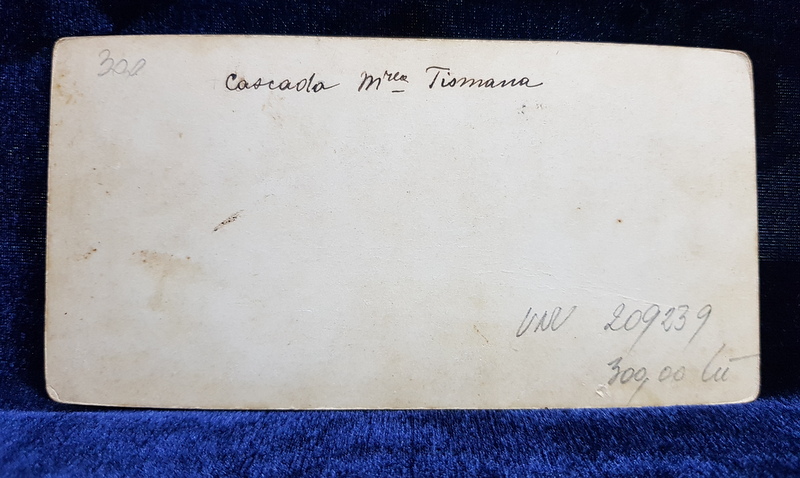 300
Cascada Mrea Tismana
UNV 209239
300,00 lei